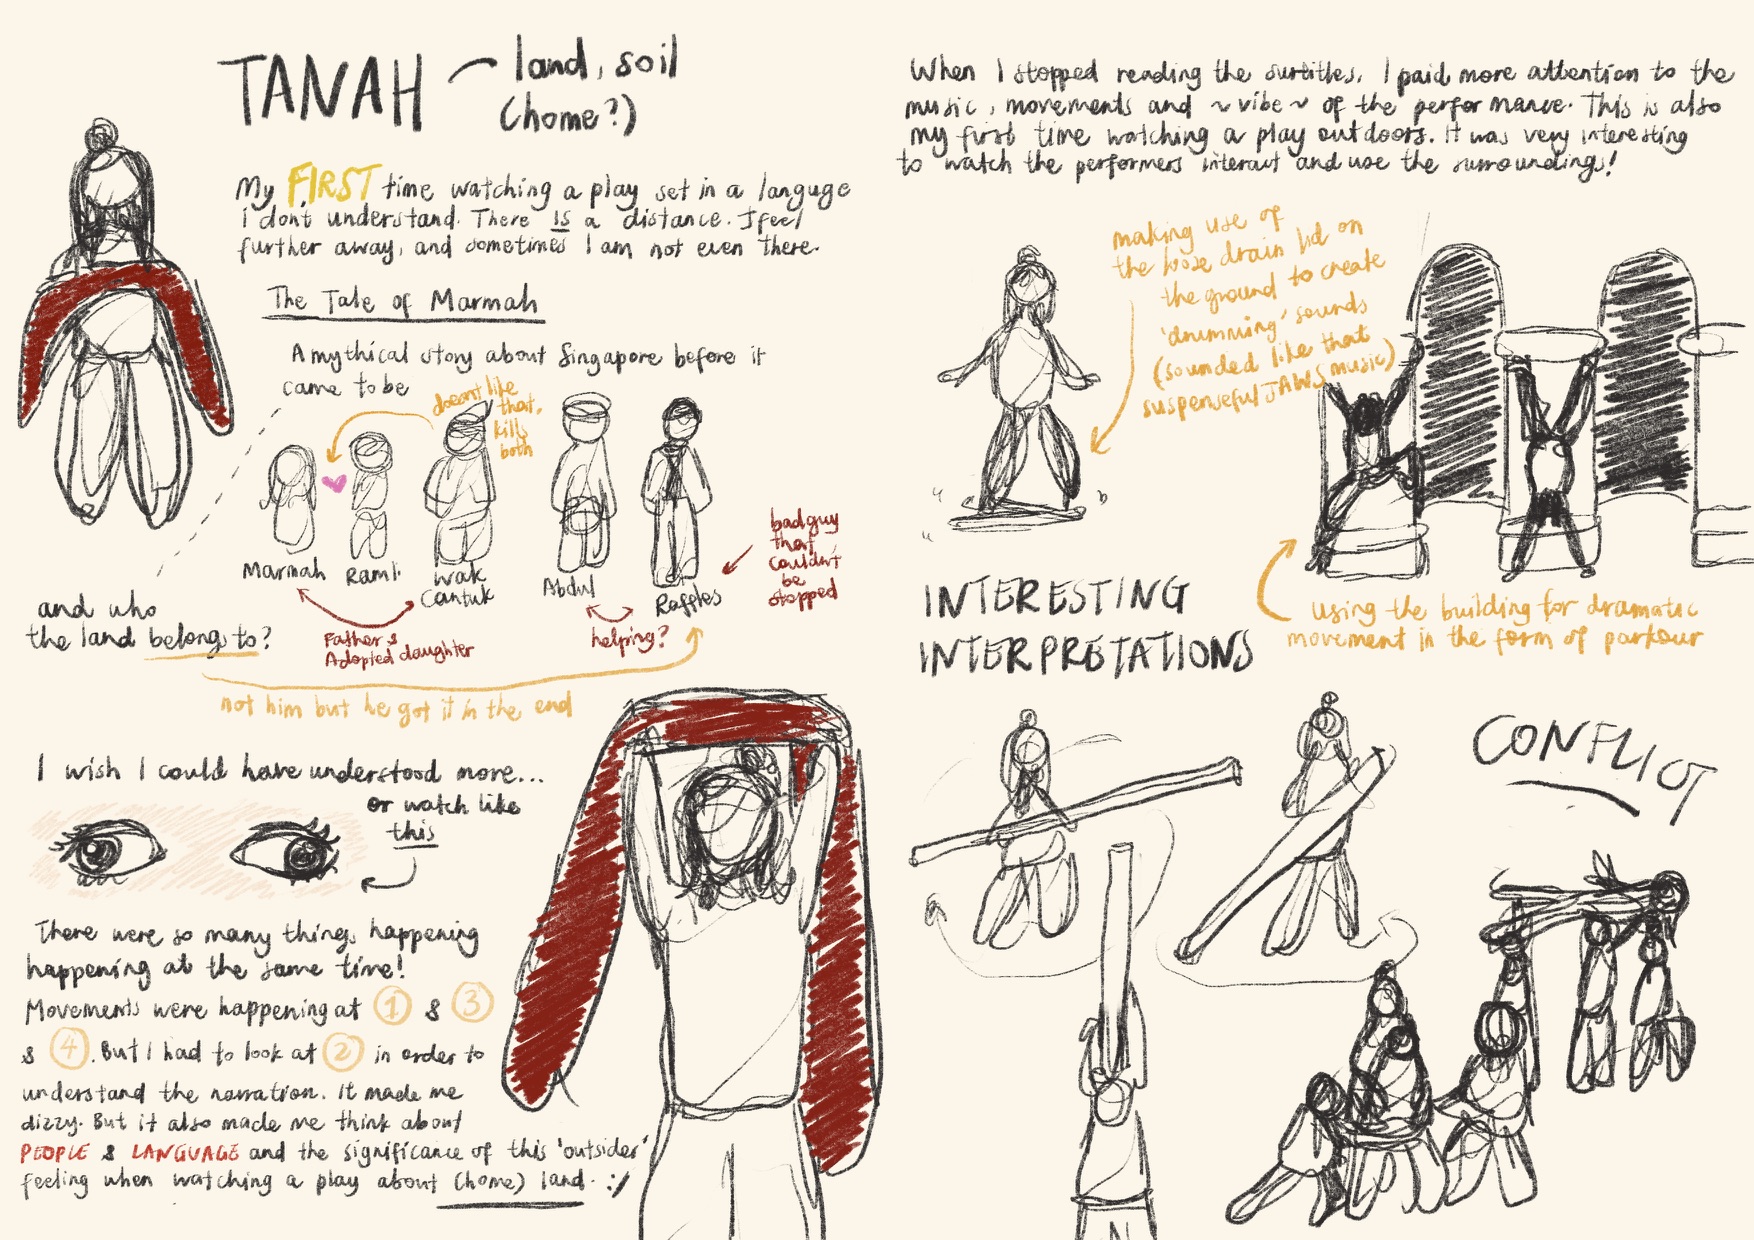 TANAH – land, soil
(home?)
My FIRST time watching a play set in a languge
i dont understand. There is a distance. I feel
further away, and sometimes I am not even there.
The Tale of Marmah
A mythical story about Singapore before it
came to be
doesnt like
that,
kills
both
Marmah
Ramli
Wak
Cantuk
Abdul
Raffles
bad guy
that
couldn't
be
stopped
Father &
Adopted daughter
helping?
and who
the land belongs to?
not him but he got it in the end
I wish I could have understood more...
or watch like
this
There were so many things happening
happening at the same time!
Movements were happening at 1 & 3
& 4. But I had to look at 2 in order to
understand the narration. It made me
dizzy. But it also made me think about
PEOPLE & LANGUAGE and the significance of this 'outsider'
feeling when watching a play about (home) land. :/
When I stopped reading the surtitles, I paid more attention to the
music, movements and ~vibe~ of the performance. This is also
my first time watching a play outdoors. It was very interesting
to watch the performers interact and use the surroundings!
making use of
the loose drain lid on
the ground to create
'drumming' sounds
(sounded like that
suspenseful JAWS music)
using the building for dramatic
movement in the form of parkour
INTERESTING
INTERPRETATIONS
CONFLICT